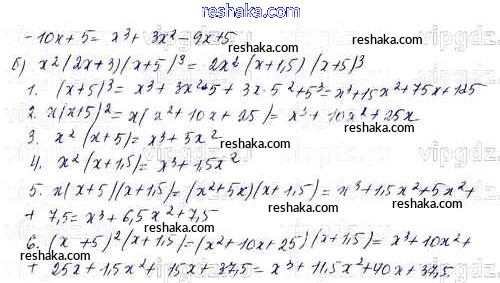 reshaka.com
-10x + 5 = x³ + 3x² - 9x + 5
reshaka.com
б) x²(2x+3)(x+5)³ = 2x²(x+1,5)(x+5)³
1. (x+5)³ = x³ + 3x²·5 + 3x·5² + 5³ = x³ + 15x² + 75x + 125
2. x(x+5)² = x(x² + 10x + 25) = x³ + 10x² + 25x
reshaka.com
3. x²(x+5) = x³ + 5x²
reshaka.com
4. x²(x+1,5) = x³ + 1,5x²
reshaka.com
5. x(x+5)(x+1,5) = (x² + 5x)(x+1,5) = x³ + 1,5x² + 5x² +
+ 7,5 = x³ + 6,5x² + 7,5
reshaka.com
6. (x+5)²(x+1,5) = (x² + 10x + 25)(x+1,5) = x³ + 10x² +
+ 25x + 1,5x² + 15x + 37,5 = x³ + 11,5x² + 40x + 37,5
reshaka.com